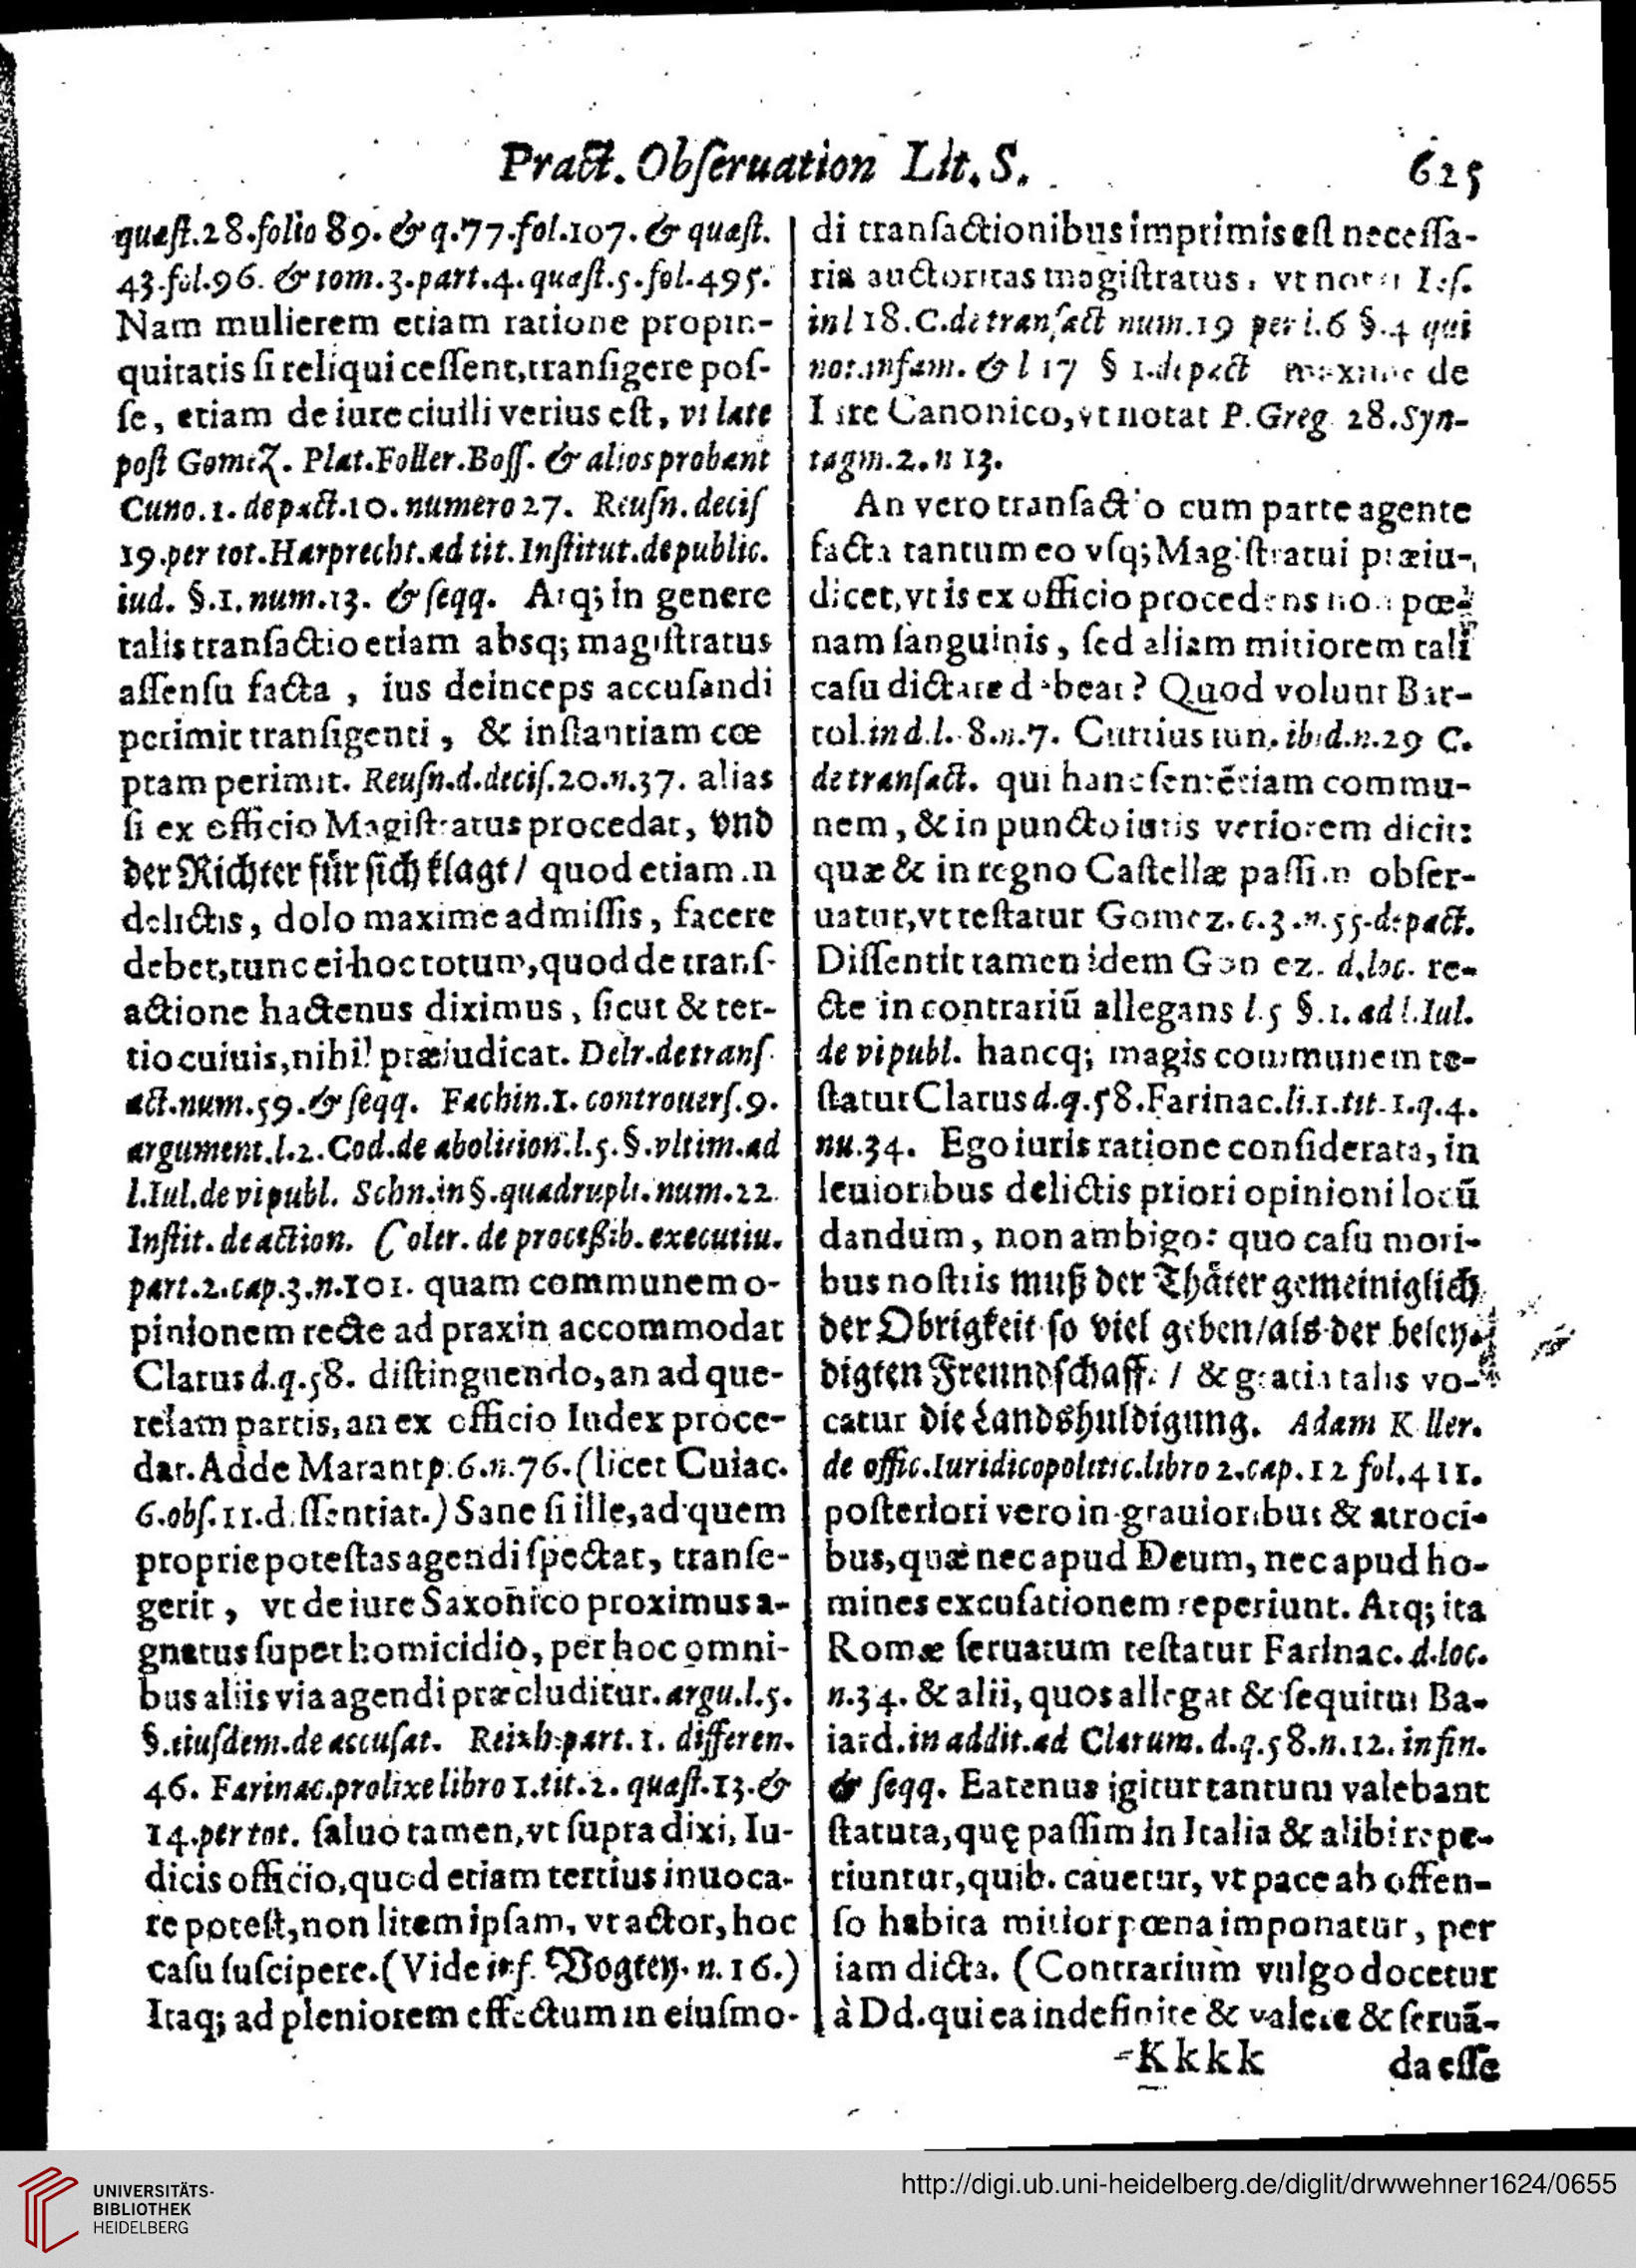 Pract. Obſeruation Lit. S. 625
quæſt. 28. folio 89. & q. 77. fol. 107. & quæſt.
43. fol. 96. & tom. 3. part. 4. quæſt. 5. fol. 495.
Nam mulierem etiam ratione propin-
quitatis ſi reliqui ceſſent, tranſigere poſ-
ſe, etiam de iure ciuili verius eſt, vt late
poſt Gomez. Plat. Foller. Boſſ. & alios probant
Cuno. 1. de pact. 10. numero 27. Reuſn. deciſ
19. per tot. Harprecht. ad tit. Inſtitut. de public.
iud. §. 1. num. 13. & ſeqq. Atq; in genere
talis tranſactio etiam absq; magiſtratus
aſſenſu facta, ius deinceps accuſandi
perimit tranſigenti, & inſtantiam cœ
ptam perimit. Reuſn. d. deciſ. 20. n. 37. alias
ſi ex officio Magiſtratus procedat, vnd
der Richter für ſich klagt / quod etiam in
delictis, dolo maxime admiſſis, facere
debet, tunc ei hoc totum, quod de tranſ-
actione hactenus diximus, ſicut & ter-
tio cuiuis, nihil præiudicat. Delr. de tranſ
act. num. 59. & ſeqq. Fachin. 1. controuerſ. 9.
argument. l. 2. Cod. de abolition. l. 5. §. vltim. ad
l. Iul. de vi publ. Schn. in §. quadrupli. num. 22.
Inſtit. de action. Coler. de proceßib. executiu.
part. 2. cap. 3. n. 101. quam communem o-
pinionem recte ad praxin accommodat
Clarus d. q. 58. diſtinguendo, an ad que-
relam partis, an ex officio Iudex proce-
dat. Adde Marant p. 6. n. 76. (licet Cuiac.
6. obſ. 11. diſſentiat.) Sane ſi ille, ad quem
proprie poteſtas agendi ſpectat, tranſe-
gerit, vt de iure Saxonico proximus a-
gnatus ſuper homicidio, per hoc omni-
bus aliis via agendi præcluditur. argu. l. 5.
§. eiuſdem. de accuſat. Reixb. part. 1. differen.
46. Farinac. prolixe libro 1. tit. 2. quæſt. 13. &
14. per tot. ſaluo tamen, vt ſupra dixi, Iu-
dicis officio, quod etiam tertius inuoca-
re poteſt, non litem ipſam, vt actor, hoc
caſu ſuſcipere. (Vide inf. Vogtey. n. 16.)
Itaq; ad pleniorem effectum in eiuſmo-
di tranſactionibus imprimis eſt neceſſa-
ria auctoritas magiſtratus, vt notat Iaſ.
in l 18. C. de tranſact num. 19 per l. 6 §. 4 qui
not. infam. & l 17 § 1. de pact maxime de
Iure Canonico, vt notat P. Greg 28. Syn-
tagm. 2. n 13.
An vero tranſactio cum parte agente
facta tantum eo vſq; Magiſtratui præiu-
dicet, vt is ex officio procedens non pœ-
nam ſanguinis, ſed aliam mitiorem tali
caſu dictare debeat? Quod volunt Bar-
tol. in d. l. 8. n. 7. Curtius iun. ibid. n. 29 C.
de tranſact. qui hanc ſentẽtiam commu-
nem, & in puncto iuris veriorem dicit:
quæ & in regno Caſtellæ paſſim obſer-
uatur, vt teſtatur Gomez. c. 3. n. 55. de pact.
Diſſentit tamen idem Gomez. d. loc. re-
cte in contrariũ allegans l. 5 §. 1. ad l. Iul.
de vi publ. hancq; magis communem te-
ſtatur Clarus d. q. 58. Farinac. li. 1. tit. 1. q. 4.
nu. 34. Ego iuris ratione conſiderata, in
leuioribus delictis priori opinioni locũ
dandum, non ambigo: quo caſu mori-
bus noſtris muß der Thäter gemeiniglich
der Obrigkeit ſo viel geben / als der beley-
digten Freundſchafft / & gratia talis vo-
catur die Landshuldigung. Adam Keller.
de offic. Iuridicopolitic. libro 2. cap. 12 fol. 411.
poſteriori vero in grauioribus & atroci-
bus, quæ nec apud Deum, nec apud ho-
mines excuſationem reperiunt. Atq; ita
Romæ ſeruatum teſtatur Farinac. d. loc.
n. 34. & alii, quos allegat & ſequitur Ba-
iard. in addit. ad Clarum. d. q. 58. n. 12. in fin.
& ſeqq. Eatenus igitur tantum valebant
ſtatuta, quę paſſim in Italia & alibi repe-
riuntur, quib. cauetur, vt pace ab offen-
ſo habita mitior pœna imponatur, per
iam dicta. (Contrarium vulgo docetur
à Dd. qui ea indefinite & valere & ſeruã-
Kkkk da eſſe
UNIVERSITÄTS-
BIBLIOTHEK
HEIDELBERG
http://digi.ub.uni-heidelberg.de/diglit/drwwehner1624/0655